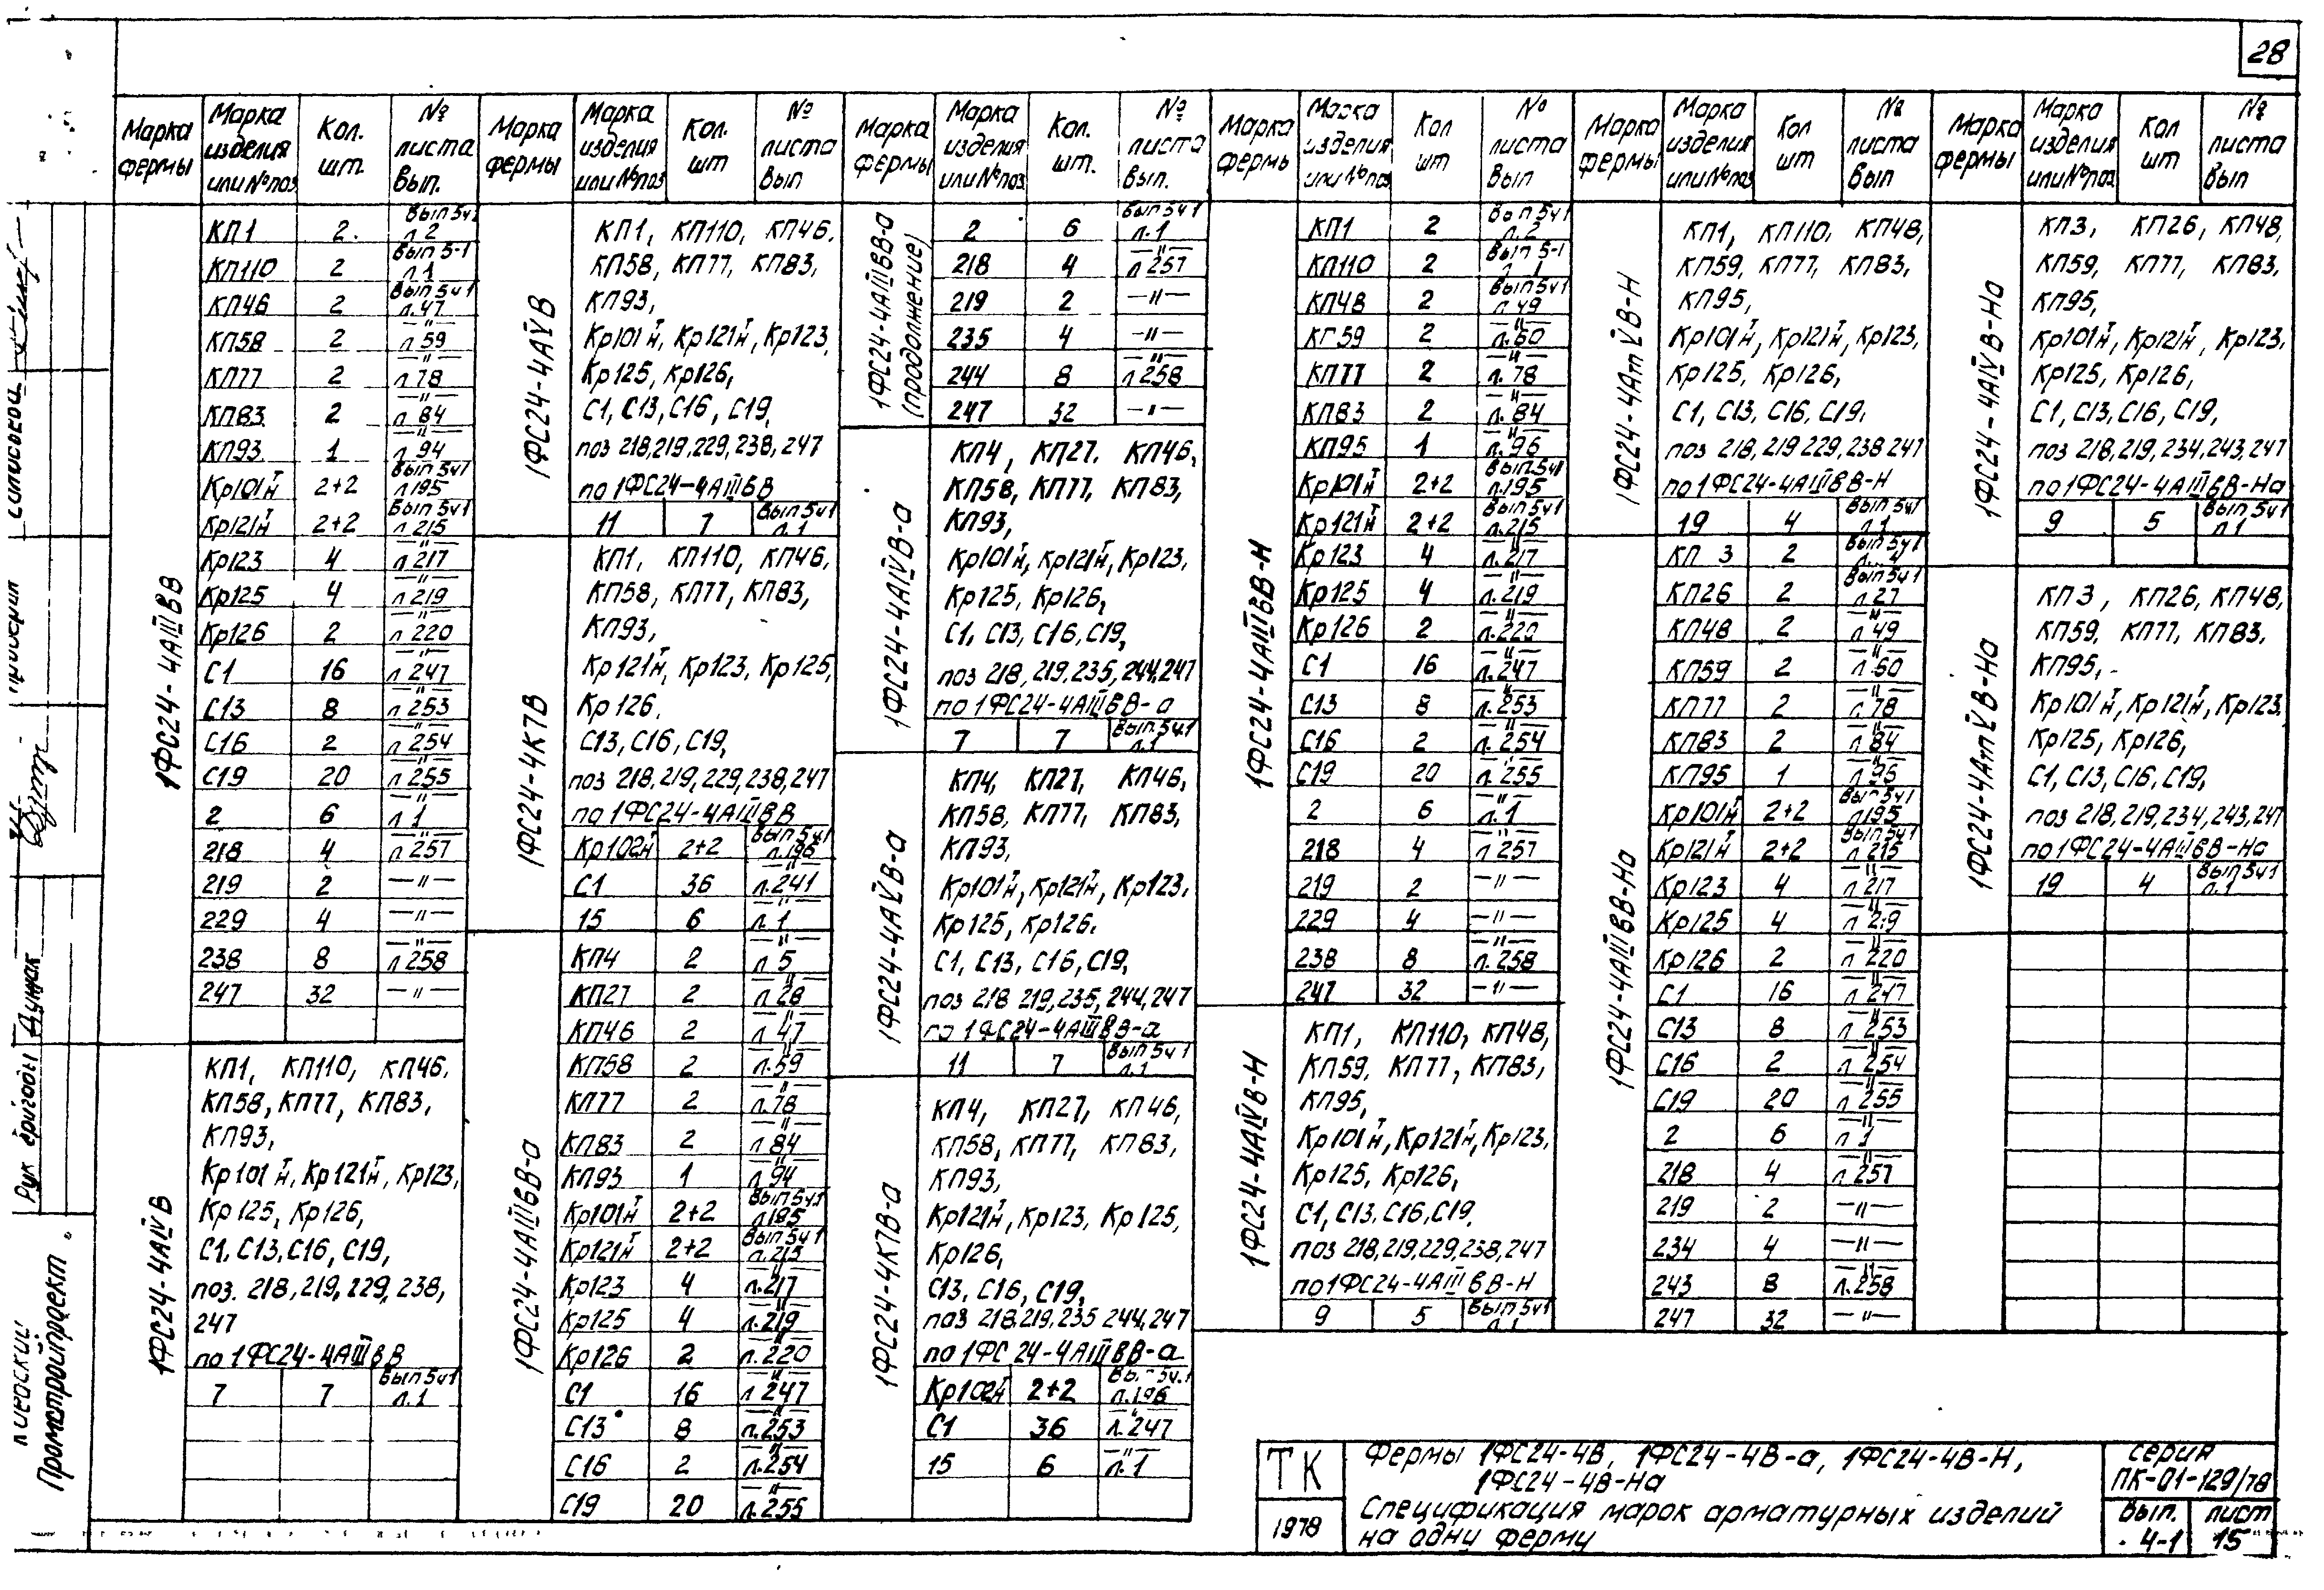 28
Марка фермы | Марка изделия или № поз | Кол. шт. | № листа Вып.
1ФС24-4АIIIвВ
КП1 | 2 | Вып 5ч1 л 2
КП110 | 2 | Вып 5-1 л 1
КП46 | 2 | Вып 5ч1 л.47
КП58 | 2 | —"— л 59
КП77 | 2 | —"— л 78
КП83 | 2 | —"— л 84
КП93 | 1 | —"— л 94
Кр101 т/н | 2+2 | Вып 5ч1 л 195
Кр121 т/н | 2+2 | Вып 5ч1 л 215
Кр123 | 4 | —"— л 217
Кр125 | 4 | —"— л 219
Кр126 | 2 | —"— л 220
С1 | 16 | —"— л 247
С13 | 8 | —"— л 253
С16 | 2 | —"— л 254
С19 | 20 | —"— л 255
2 | 6 | —"— л 1
218 | 4 | —"— л 257
219 | 2 | —"—
229 | 4 | —"—
238 | 8 | —"— л 258
247 | 32 | —"—
1ФС24-4АIVВ
КП1, КП110, КП46,
КП58, КП77, КП83,
КП93,
Кр101 т/н, Кр121 т/н, Кр123,
Кр125, Кр126,
С1, С13, С16, С19,
поз. 218, 219, 229, 238,
247
по 1ФС24-4АIIIвВ
7 | 7 | Вып 5ч1 л.1
Марка фермы | Марка изделия или № поз | Кол. шт | № листа Вып
1ФС24-4АVВ
КП1, КП110, КП46,
КП58, КП77, КП83,
КП93,
Кр101 т/н, Кр121 т/н, Кр123,
Кр125, Кр126,
С1, С13, С16, С19,
поз 218, 219, 229, 238, 247
по 1ФС24-4АIIIвВ
11 | 7 | Вып 5ч1 л.1
1ФС24-4К7В
КП1, КП110, КП46,
КП58, КП77, КП83,
КП93,
Кр121 т/н, Кр123, Кр125,
Кр126,
С13, С16, С19,
поз 218, 219, 229, 238, 247
по 1ФС24-4АIIIвВ
Кр102 т/н | 2+2 | Вып 5ч1 л.196
С1 | 36 | —"— л.241
15 | 6 | —"— л.1
1ФС24-4АIIIвВ-а
КП4 | 2 | —"— л 5
КП27 | 2 | —"— л 28
КП46 | 2 | —"— л 47
КП58 | 2 | —"— л.59
КП77 | 2 | —"— л.78
КП83 | 2 | —"— л 84
КП93 | 1 | —"— л 94
Кр101 т/н | 2+2 | Вып 5ч1 л 195
Кр121 т/н | 2+2 | Вып 5ч1 л.215
Кр123 | 4 | —"— л.217
Кр125 | 4 | —"— л.219
Кр126 | 2 | —"— л.220
С1 | 16 | —"— л 247
С13 | 8 | —"— л.253
С16 | 2 | —"— л.254
С19 | 20 | —"— л.255
Марка фермы | Марка изделия или № поз | Кол. шт. | № листа Вып.
1ФС24-4АIIIвВ-а (продолжение)
2 | 6 | Вып 5ч1 л.1
218 | 4 | —"— л 257
219 | 2 | —"—
235 | 4 | —"—
244 | 8 | —"— л 258
247 | 32 | —"—
1ФС24-4АIVВ-а
КП4, КП27, КП46,
КП58, КП77, КП83,
КП93,
Кр101 т/н, Кр121 т/н, Кр123,
Кр125, Кр126,
С1, С13, С16, С19,
поз 218, 219, 235, 244, 247
по 1ФС24-4АIIIвВ-а
7 | 7 | Вып 5ч1 л.1
1ФС24-4АVВ-а
КП4, КП27, КП46,
КП58, КП77, КП83,
КП93,
Кр101 т/н, Кр121 т/н, Кр123,
Кр125, Кр126,
С1, С13, С16, С19,
поз 218 219, 235, 244, 247
по 1ФС24-4АIIIвВ-а
11 | 7 | Вып 5ч1 л.1
1ФС24-4К7В-а
КП4, КП27, КП46,
КП58, КП77, КП83,
КП93,
Кр121 т/н, Кр123, Кр125,
Кр126,
С13, С16, С19,
поз 218, 219, 235 244, 247
по 1ФС24-4АIIIвВ-а
Кр102 т/н | 2+2 | Вып 5ч.1 л.196
С1 | 36 | —"— л.247
15 | 6 | —"— л.1
Марка фермы | Марка изделия или № поз | Кол шт | № листа Вып
1ФС24-4АIIIвВ-Н
КП1 | 2 | Вып 5ч1 л.2
КП110 | 2 | Вып 5-1 л 1
КП48 | 2 | Вып 5ч1 л.49
КП59 | 2 | —"— л.60
КП77 | 2 | —"— л.78
КП83 | 2 | —"— л.84
КП95 | 1 | —"— л.96
Кр101 т/н | 2+2 | Вып 5ч1 л.195
Кр121 т/н | 2+2 | Вып 5ч1 л.215
Кр123 | 4 | —"— л.217
Кр125 | 4 | —"— л.219
Кр126 | 2 | —"— л.220
С1 | 16 | —"— л.247
С13 | 8 | —"— л.253
С16 | 2 | —"— л.254
С19 | 20 | —"— л.255
2 | 6 | —"— л.1
218 | 4 | —"— л 257
219 | 2 | —"—
229 | 4 | —"—
238 | 8 | —"— л.258
247 | 32 | —"—
1ФС24-4АIVВ-Н
КП1, КП110, КП48,
КП59, КП77, КП83,
КП95,
Кр101 т/н, Кр121 т/н, Кр123,
Кр125, Кр126,
С1, С13, С16, С19.
поз 218, 219, 229, 238, 247
по 1ФС24-4АIIIвВ-Н
9 | 5 | Вып 5ч1 л.1
Марка фермы | Марка изделия или № поз | Кол шт | № листа Вып
1ФС24-4АтVВ-Н
КП1, КП110, КП48,
КП59, КП77, КП83,
КП95,
Кр101 т/н, Кр121 т/н, Кр123,
Кр125, Кр126,
С1, С13, С16, С19,
поз 218, 219 229, 238 247
по 1ФС24-4АIIIвВ-Н
19 | 4 | Вып 5ч1 л.1
1ФС24-4АIIIвВ-На
КП 3 | 2 | Вып 5ч1 л. 4
КП26 | 2 | Вып 5ч1 л 27
КП48 | 2 | —"— л 49
КП59 | 2 | л 60
КП77 | 2 | —"— л 78
КП83 | 2 | —"— л 84
КП95 | 1 | —"— л 96
Кр101 т/н | 2+2 | Вып 5ч1 л 195
Кр121 т/н | 2+2 | Вып 5ч1 л 215
Кр123 | 4 | —"— л 217
Кр125 | 4 | —"— л 219
Кр126 | 2 | —"— л 220
С1 | 16 | —"— л 247
С13 | 8 | —"— л 253
С16 | 2 | —"— л 254
С19 | 20 | —"— л 255
2 | 6 | —"— л 1
218 | 4 | —"— л 257
219 | 2 | —"—
234 | 4 | —"—
243 | 8 | —"— л.258
247 | 32 | —"—
Марка фермы | Марка изделия или № поз | Кол шт | № листа Вып
1ФС24-4АIVВ-На
КП3, КП26, КП48,
КП59, КП77, КП83,
КП95,
Кр101 т/н, Кр121 т/н, Кр123,
Кр125, Кр126,
С1, С13, С16, С19,
поз 218, 219, 234, 243, 247
по 1ФС24-4АIIIвВ-На
9 | 5 | Вып 5ч1 л 1
1ФС24-4АтVВ-На
КП3, КП26, КП48,
КП59, КП77, КП83,
КП95,
Кр101 т/н, Кр121 т/н, Кр123,
Кр125, Кр126,
С1, С13, С16, С19,
поз 218, 219, 234, 243, 247
по 1ФС24-4АIIIвВ-На
19 | 4 | Вып 5ч1 л.1
ТК
1978
Фермы 1ФС24-4В, 1ФС24-4В-а, 1ФС24-4В-Н,
1ФС24-4В-На
Спецификация марок арматурных изделий
на одну ферму
серия
ПК-01-129/78
Вып. 4-1
лист 15
Рук бригады
Промстройпроект